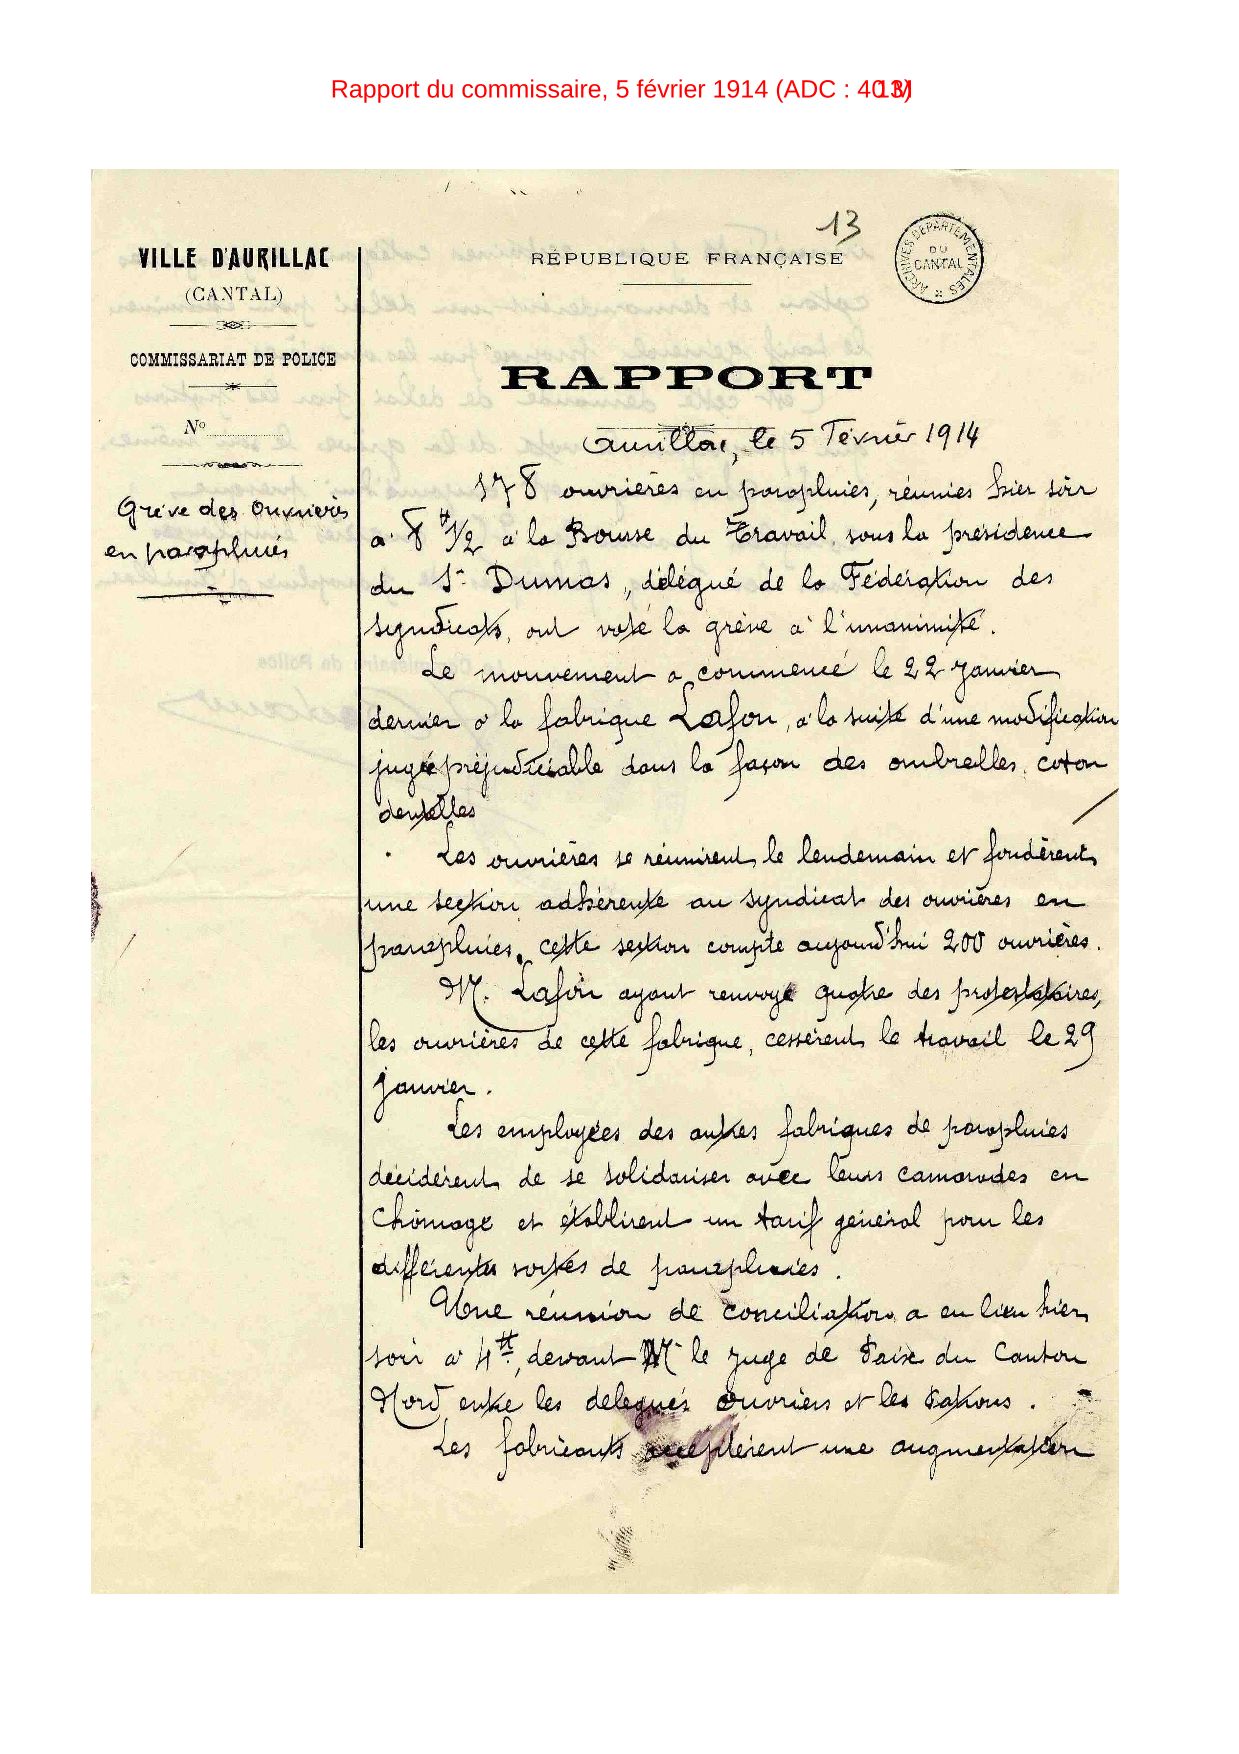 Rapport du commissaire, 5 février 1914 (ADC : 40 M 13)
13
ARCHIVES DÉPARTEMENTALES
DU
CANTAL
VILLE D'AURILLAC
(CANTAL)
COMMISSARIAT DE POLICE
N°
Grève des Ouvrières
en parapluies
RÉPUBLIQUE FRANÇAISE
RAPPORT
Aurillac, le 5 Février 1914
178 ouvrières en parapluies, réunies hier soir
à 8 H 1/2 à la Bourse du Travail, sous la présidence
du Sr Dumas, délégué de la Fédération des
syndicats, ont voté la grève à l'unanimité.
Le mouvement a commencé le 22 Janvier
dernier à la fabrique Lafon, à la suite d'une modification
jugée préjudiciable dans la façon des ombrelles, coton
dentelles
Les ouvrières se réunirent le lendemain et fondèrent
une section adhérente au syndicat des ouvrières en
parapluies, cette section compte aujourd'hui 200 ouvrières.
M. Lafon ayant renvoyé quatre des protestataires,
les ouvrières de cette fabrique, cessèrent le travail le 29
janvier.
Les employées des autres fabriques de parapluies
décidèrent de se solidariser avec leurs camarades en
chômage et établirent un tarif général pour les
différentes sortes de parapluies.
Une réunion de conciliation a eu lieu hier
soir à 4 H, devant M. le Juge de Paix du Canton
Nord entre les délégués ouvriers et les Patrons.
Les fabricants acceptèrent une augmentation